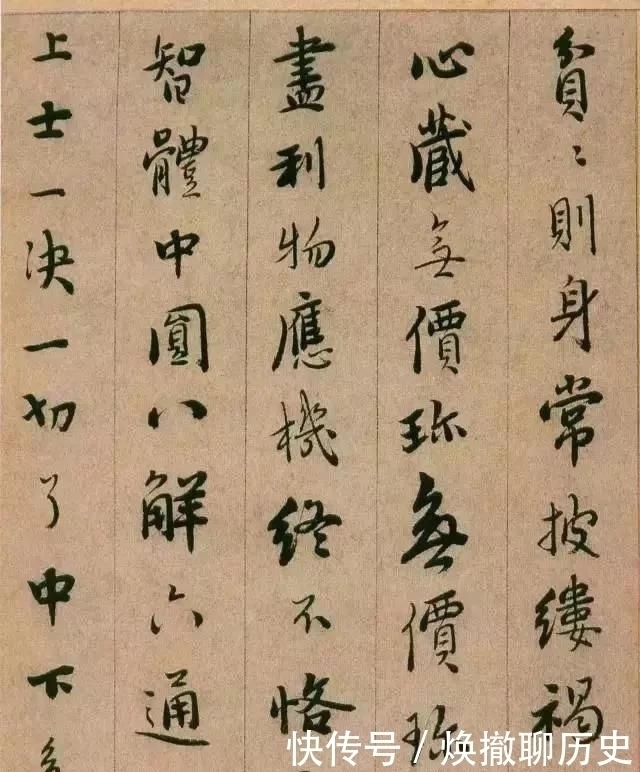 貧〻則身常披縷褐
心藏無價珎無價珎
盡利物應機終不悋
智體中圓八解六通
上士一決一切了中下多
快传号/焕撤聊历史